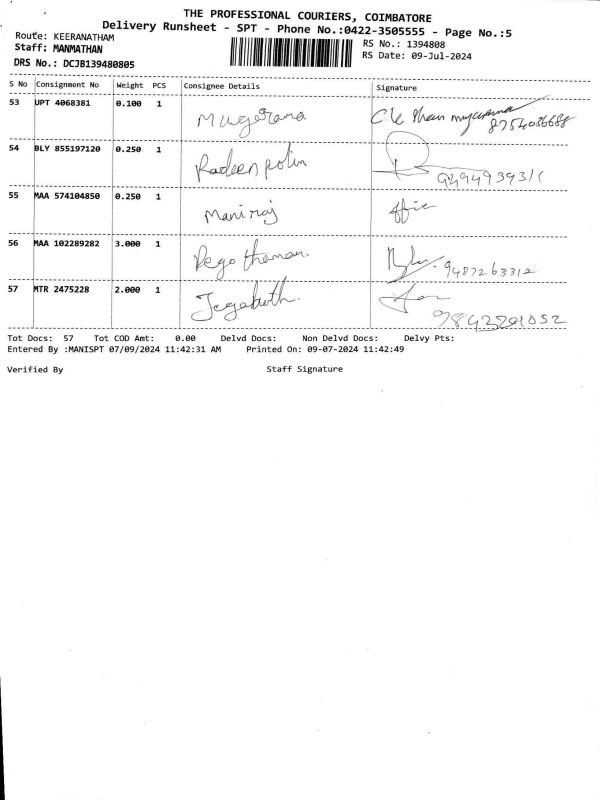 THE PROFESSIONAL COURIERS, COIMBATORE
Delivery Runsheet - SPT - Phone No.:0422-3505555 - Page No.:5
Route: KEERANATHAM
RS No.: 1394808
Staff: MANMATHAN
RS Date: 09-Jul-2024
DRS No.: DCJB139480805
S No Consignment No Weight PCS Consignee Details Signature
53 UPT 4068381 0.100 1 Mugerama
8754036688
54 BLY 855197120 0.250 1 Radeen polin
55 MAA 574104850 0.250 1 Maniraj
56 MAA 102289282 3.000 1 9487263312
57 MTR 2475228 2.000 1 9843201052
Tot Docs: 57 Tot COD Amt: 0.00 Delvd Docs: Non Delvd Docs: Delvy Pts:
Entered By :MANISPT 07/09/2024 11:42:31 AM Printed On: 09-07-2024 11:42:49
Verified By Staff Signature